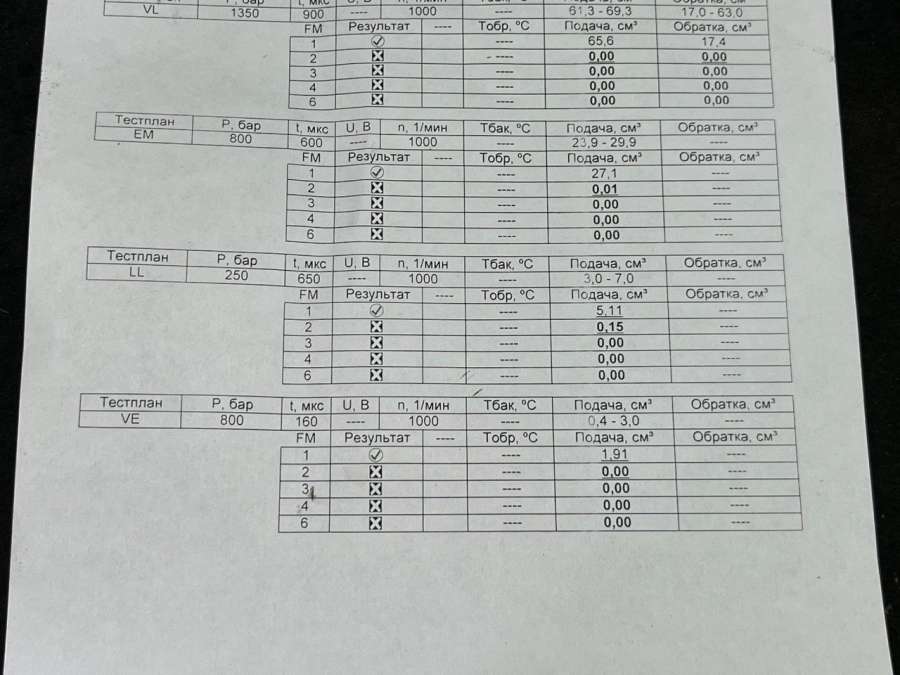 VL 1350 900 ---- 1000 ---- 61,3 - 69,3 17,0 - 63,0
FM Результат ---- Тобр, ºC Подача, см³ Обратка, см³
1 ---- 65,6 17,4
2 ---- 0,00 0,00
3 ---- 0,00 0,00
4 ---- 0,00 0,00
6 ---- 0,00 0,00
Тестплан P, бар t, мкс U, В n, 1/мин Тбак, ºC Подача, см³ Обратка, см³
EM 800 600 ---- 1000 ---- 23,9 - 29,9 ----
FM Результат ---- Тобр, ºC Подача, см³ Обратка, см³
1 ---- 27,1 ----
2 ---- 0,01 ----
3 ---- 0,00 ----
4 ---- 0,00 ----
6 ---- 0,00 ----
Тестплан P, бар t, мкс U, В n, 1/мин Тбак, ºC Подача, см³ Обратка, см³
LL 250 650 ---- 1000 ---- 3,0 - 7,0 ----
FM Результат ---- Тобр, ºC Подача, см³ Обратка, см³
1 ---- 5,11 ----
2 ---- 0,15 ----
3 ---- 0,00 ----
4 ---- 0,00 ----
6 ---- 0,00 ----
Тестплан P, бар t, мкс U, В n, 1/мин Тбак, ºC Подача, см³ Обратка, см³
VE 800 160 ---- 1000 ---- 0,4 - 3,0 ----
FM Результат ---- Тобр, ºC Подача, см³ Обратка, см³
1 ---- 1,91 ----
2 ---- 0,00 ----
3 ---- 0,00 ----
4 ---- 0,00 ----
6 ---- 0,00 ----